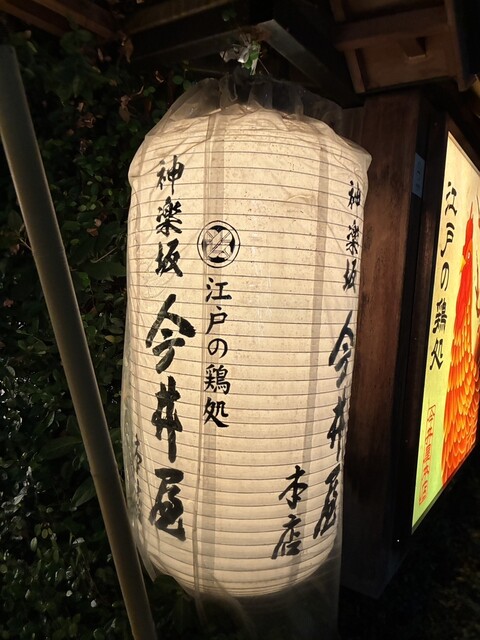 神楽坂
今井屋
江戸の鶏処
神楽坂
今井屋
本店
江戸の鶏処
今井屋本店